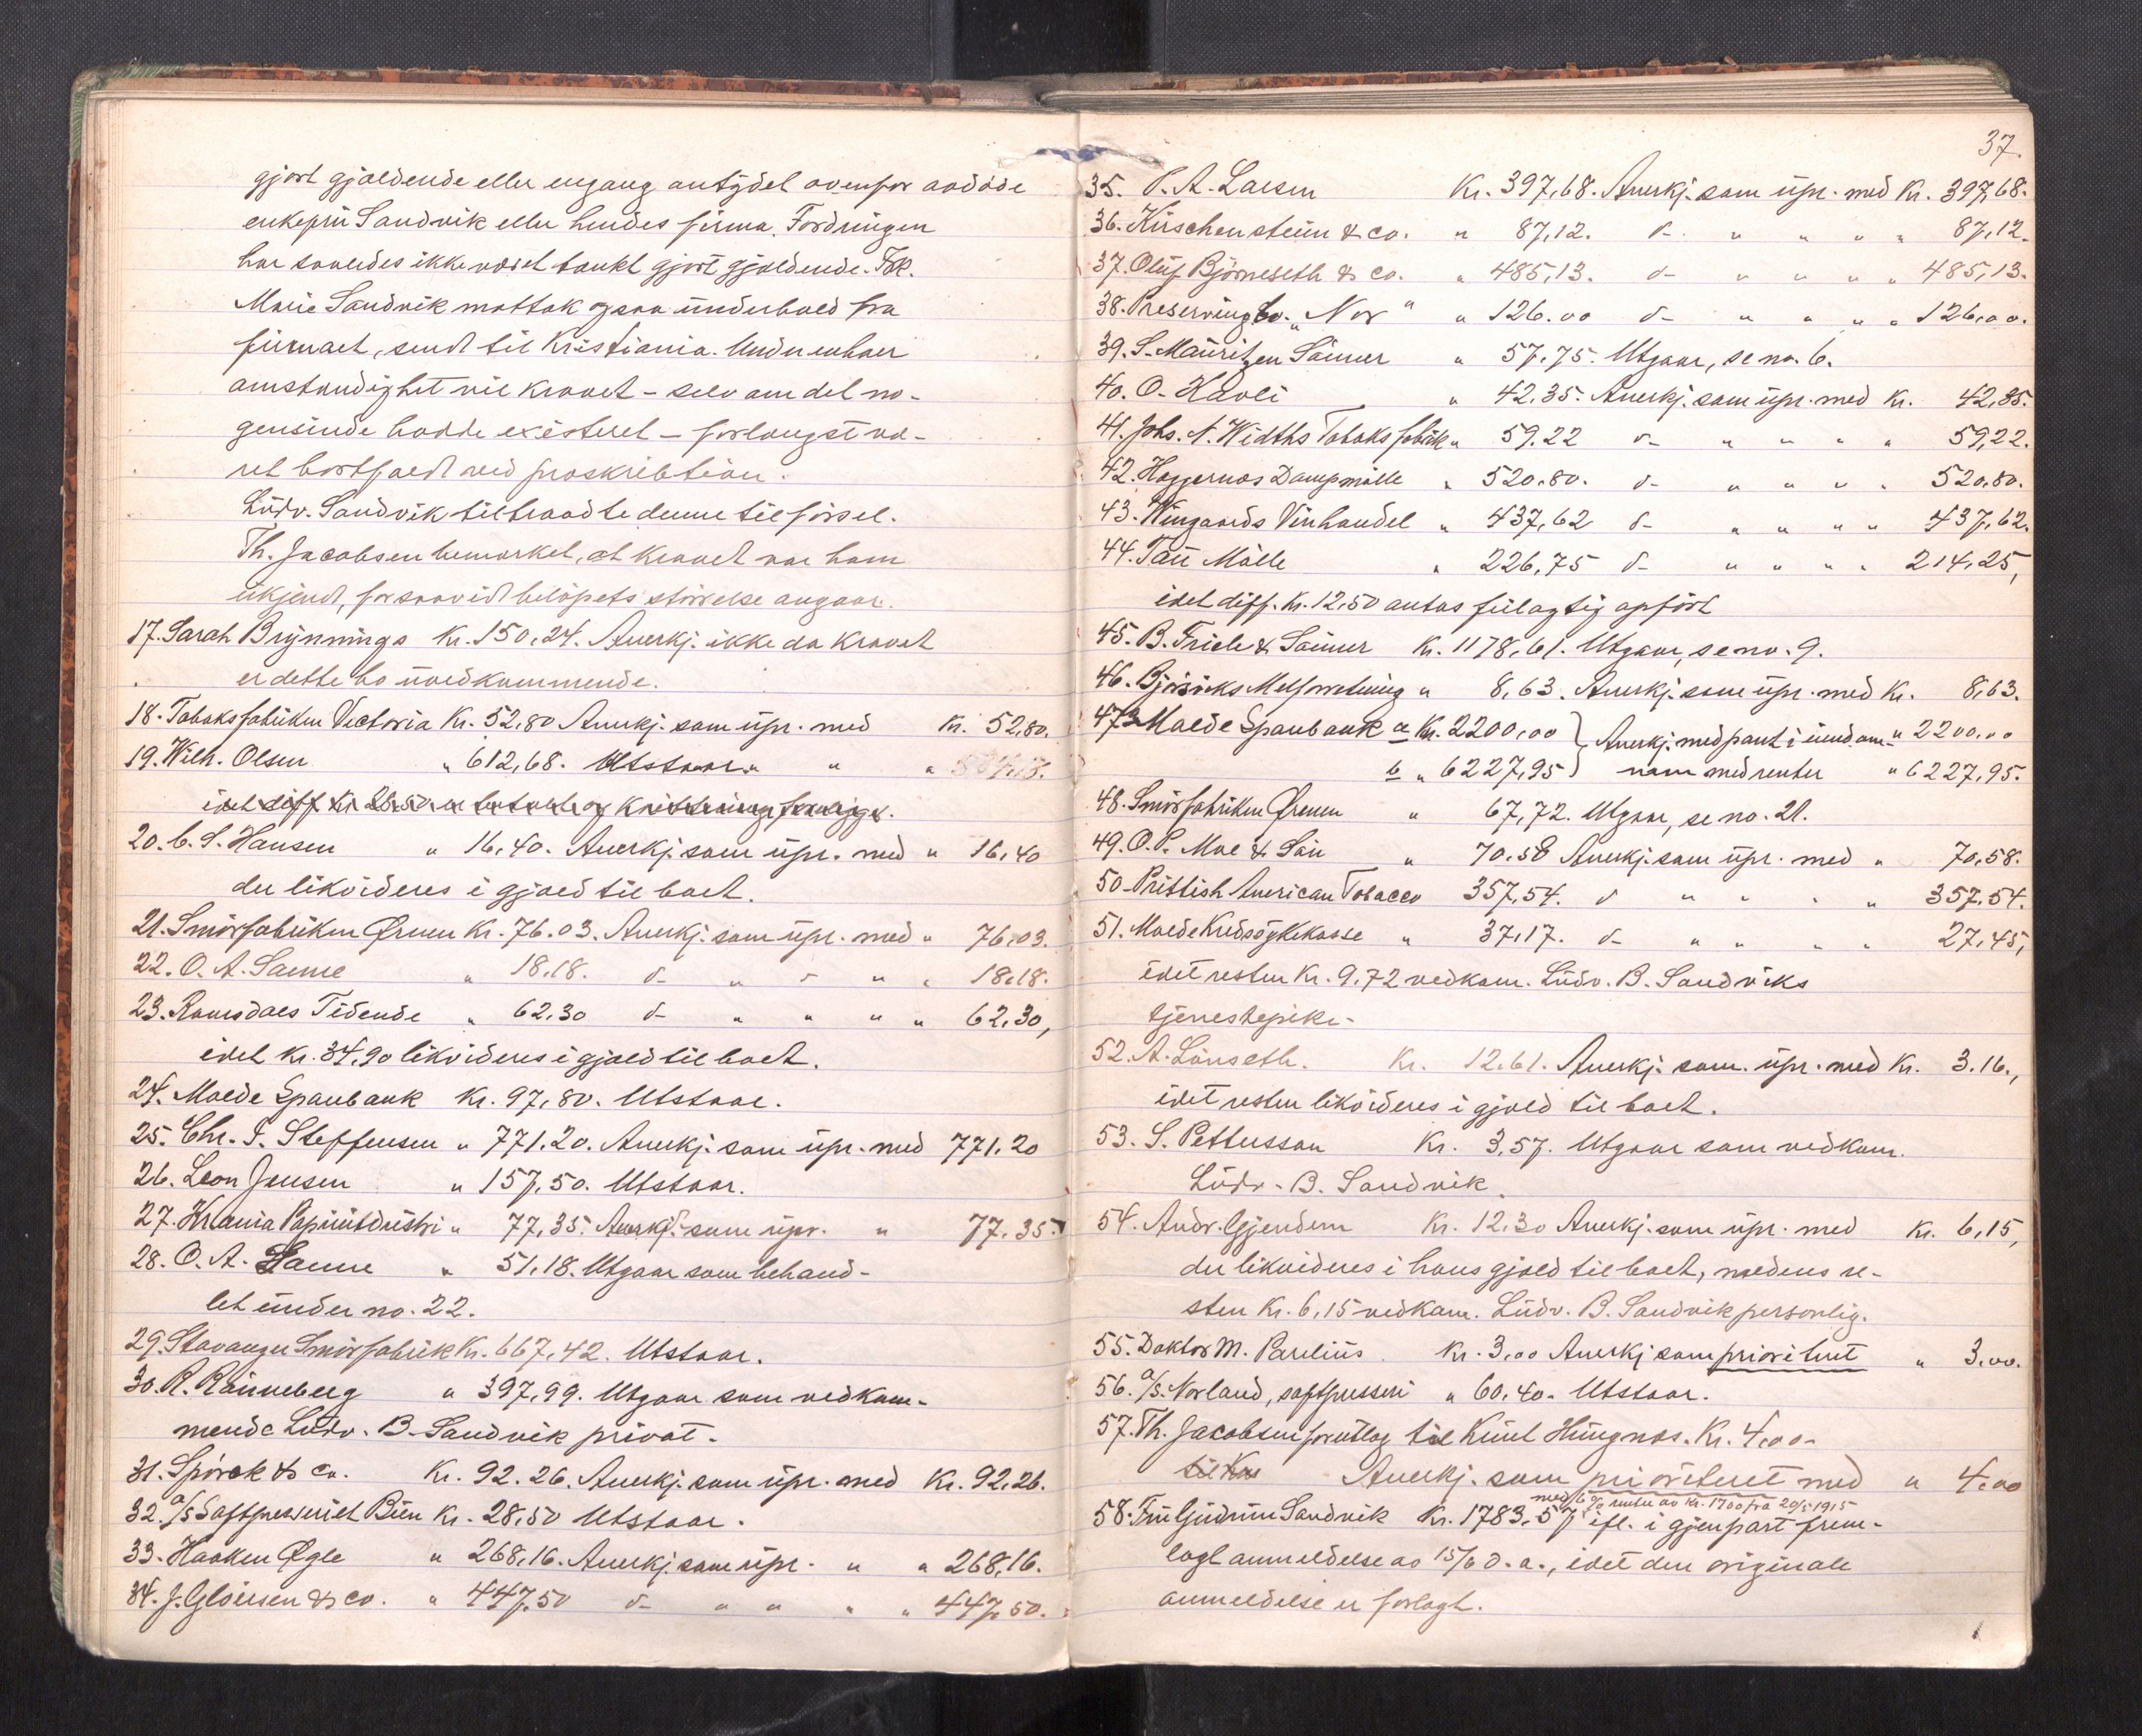 gjort gjældende eller engang antydet ovenfor avdöde
enkefru Sandvik eller hendes firma. Fordringen
har saaledes ikke været tænkt gjort gjældende. Frk.
Marie Sandvik mottok ogsaa underhold fra
firmaet, sendt til Kristiania. Under enhver
omstændighet vil kravet - selv om det no-
gensinde hadde existeret - forlængst væ-
ret bortfaldt ved proskribtion.
Ludv. Sandvik tiltraadte denne tilförsel.
Th. Jacobsen bemerket, at kravet var ham
ukjendt, forsaavidt belöpets störrelse angaar.
17. Sarah Brynnings Kr. 150,24. Anerkj. ikke da kravet
er dette bo uvedkommende.
18. Tobaksfabriken Victoria Kr. 52,80 Anerkj. som upr. med Kr. 52,80.
19. Wilh. Olsen " 612,68. Utstaar. " "
idet diff. Kr
20. C. S. Hansen " 16,40. Anerkj. som upr. med " 16,40
der likvideres i gjæld til boet.
21. Smörfabriken Ørnen Kr. 76.03. Anerkj. som upr. med " 76,03.
22. O. A. Sanne " 18,18. d- " " " " 18,18.
23. Romsdals Tidende " 62,30 d- " " " " 62,30,
idet kr. 34,90 likvideres i gjæld til boet.
24. Molde Sparebank Kr. 97,80. Utstaar.
25. Chr. F. Steffensen " 771.20. Anerkj. som upr. med 771.20
26. Leon Jensen " 157,50. Utstaar.
27. Kr.ania Papirindustri " 77,35. Anerkj. som upr. " 77.35.
28. O. A. Sanne " 51,18. Utgaar som behand-
let under no. 22.
29. Stavanger Smörfabrik Kr. 667,42. Utstaar.
30. R. Rönneberg " 397,99. Utgaar som vedkom-
mende Ludv. B. Sandvik privat.
31. Spörck & Co. Kr. 92.26. Anerkj. som upr. med Kr. 92,26.
32. A/S Saftpresseriet Kr. 28,50 Utstaar.
33. Haaken Øgle " 268,16. Anerkj. som upr. " " 268,16.
34. J. Glörsen & Co. " 447,50 d- " " " " 447,50.
37.
35. P. A. Larsen Kr. 397,68. Anerkj. som upr. med Kr. 397,68.
36. Kirschensteiin & Co. " 87,12. d- " " " " 87,12.
37. Oluf Björneseth & Co. " 485,13. d- " " " " 485,13.
38. Preserving Co. "Nor" " 126.00 d- " " " " 126,00.
39. S. Mauritzen Sönner " 57,75. Utgaar, se no. 6.
40. O. Havli " 42,35. Anerkj. som upr. med Kr. 42,35.
41. Johs. N. Widths Tobaksfabrik " 59.22 d- " " " " 59,22.
42. Haggernæs Dampmölle " 520.80. d- " " " " 520,80.
43. Wingaards Vinhandel " 437,62 d- " " " " 437,62.
44. Tau Mölle " 226,75 d- " " " " 214,25,
idet diff. Kr. 12,50 antas feilagtig opfört
45. B. Friele & Sönner Kr. 1178,61. Utgaar, se no. 9.
46. Björsviks Melforretning " 8,63. Anerkj. som upr. med Kr. 8,63.
47. Molde Sparebank a Kr. 2200,00 } Anerkj. med pant i eiendom " 2200,00
b " 6227,95 men med renter " 6227,95.
48. Smörfabriken Ørnen " 67,72. Utgaar, se no. 21.
49. O. P. Moe & Sön " 70.58 Anerkj. som upr. med " 70,58.
50. Brittish American Tobacco 357,54. d " " " " 357.54.
51. Molde Kredssykekasse " 37,17. d- " " " " 27,45,
idet resten Kr. 9,72 vedkom. Ludv. B. Sandviks
tjenestepike.
52. A. Lönseth. Kr. 12.61. Anerkj. som upr. med Kr. 3.16.,
idet resten likvideres i gjæld til boet.
53. S. Pettersson Kr. 3,57. Utgaar som vedkom.
Ludv. B. Sandvik.
54. Andr. Gjendem Kr. 12.30 Anerkj. som upr. med Kr. 6,15,
der likvideres i hans gjæld til boet, medens re-
sten Kr. 6,15 vedkom. Ludv. B. Sandvik personlig.
55. Doktor M. Parelius Kr. 3,00 Anerkj som prioritert " 3.00.
56. A/S. Norland, saftpresseri " 60,40. Utstaar.
57. Th. Jacobsen for utlæg til Knut Hungnæs. Kr. 4,00-
til Knu Anerkj. som prioriteret med " 4.00
med 6 % renter av Kr. 1700 fra 20/5 1915
58. Fru Gudrun Sandvik Kr. 1783,57 ifl. i gjenpart frem-
lagt anmeldelse av 15/6 d. a., idet den originale
anmeldelse er forlagt.